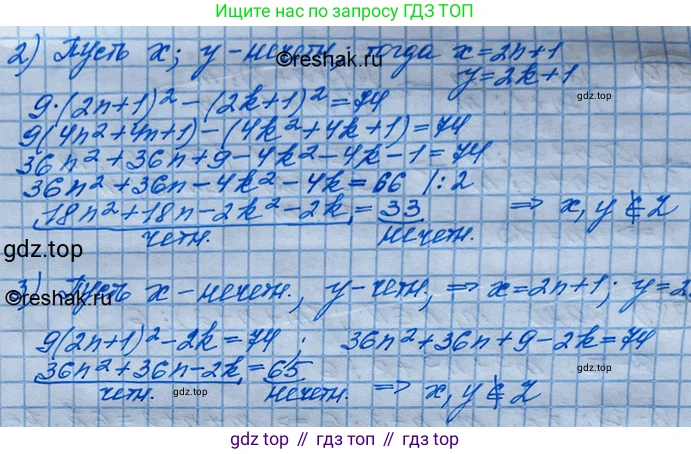 Ищите нас по запросу ГДЗ ТОП
2) Пусть x; y - нечетн, тогда x=2n+1
y=2k+1
©reshak.ru
gdz.top
9·(2n+1)²-(2k+1)²=74
9(4n²+4n+1)-(4k²+4k+1)=74
36n²+36n+9-4k²-4k-1=74
36n²+36n-4k²-4k=66 /:2
18n²+18n-2k²-2k=33 => x,y∉Z
четн. нечетн.
gdz.top
3) Пусть x-нечетн., y-четн, => x=2n+1; y=2
©reshak.ru
9(2n+1)²-2k=74; 36n²+36n+9-2k=74
36n²+36n-2k=65 => x,y∉Z
четн. нечетн.
gdz.top
gdz.top
gdz top // гдз топ // gdz.top